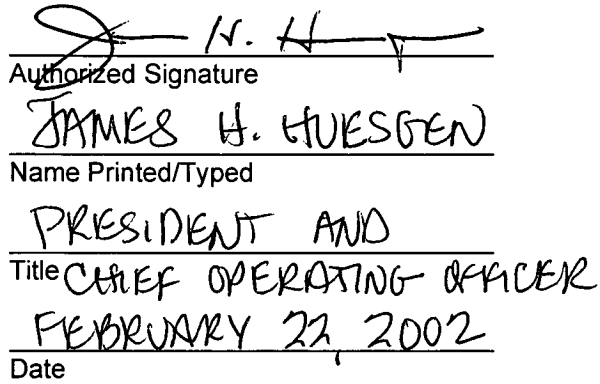 Authorized Signature
JAMES H. HUESGEN
Name Printed/Typed
PRESIDENT AND
Title CHIEF OPERATING OFFICER
FEBRUARY 22, 2002
Date